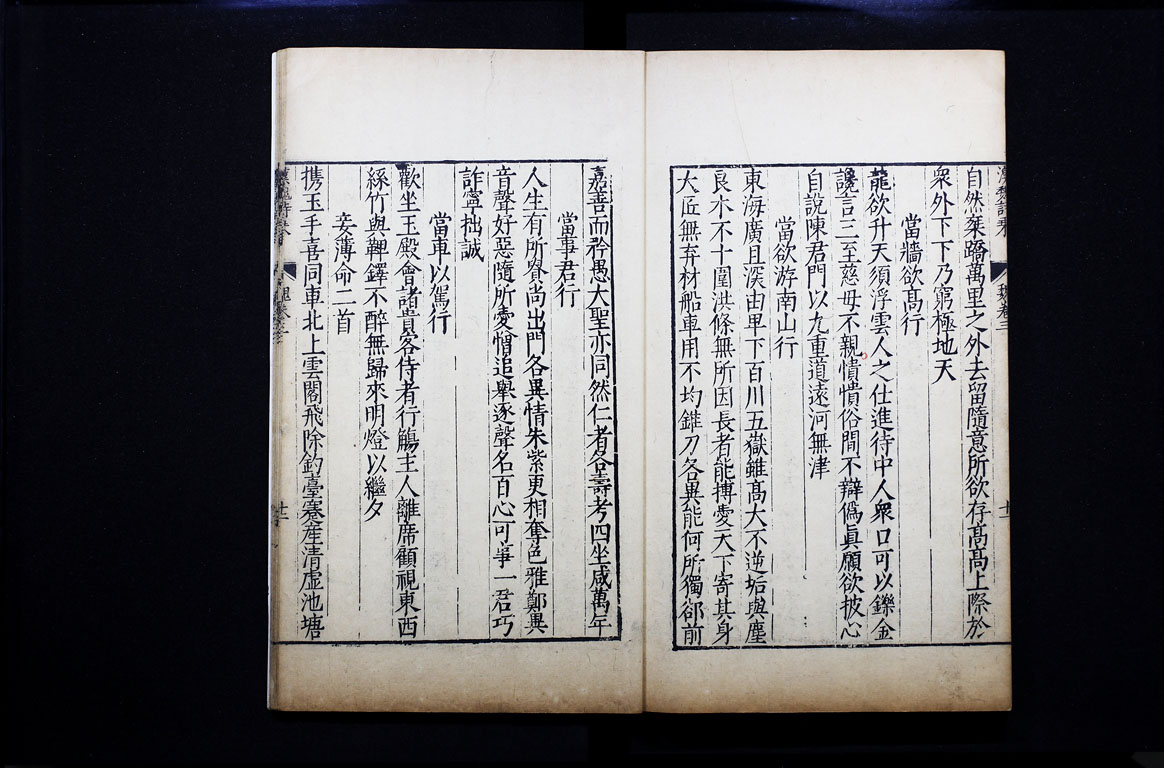 自然乗蹻萬里之外去留隨意所欲存髙髙上際於
衆外下下乃窮極地天
當牆欲髙行
龍欲升天須浮雲人之仕進待中人衆口可以鑠金
讒言三至慈母不親憒憒俗間不辯偽眞願欲披心
自說陳君門以九重道遠河無津
當欲游南山行
東海廣且深由卑下百川五嶽雖髙大不逆垢與塵
良木不十圍洪條無所因長者能搏愛天下寄其身
大匠無弃材船車用不均錐刀各異能何所獨郤前
嘉善而矜愚大聖亦同然仁者各壽考四坐咸萬年
當事君行
人生有所貴尚出門各異情朱紫更相奪色雅鄭異
音聲好惡隨所愛憎追舉逐聲名百心可事一君巧
詐寧拙誠
當車以駕行
歡坐玉殿會諸貴客侍者行觴主人離席顧視東西
絲竹與鞞鐸不醉無歸來明燈以繼夕
妾薄命二首
携玉手喜同車北上雲閣飛除釣臺蹇產清虛池塘
十二